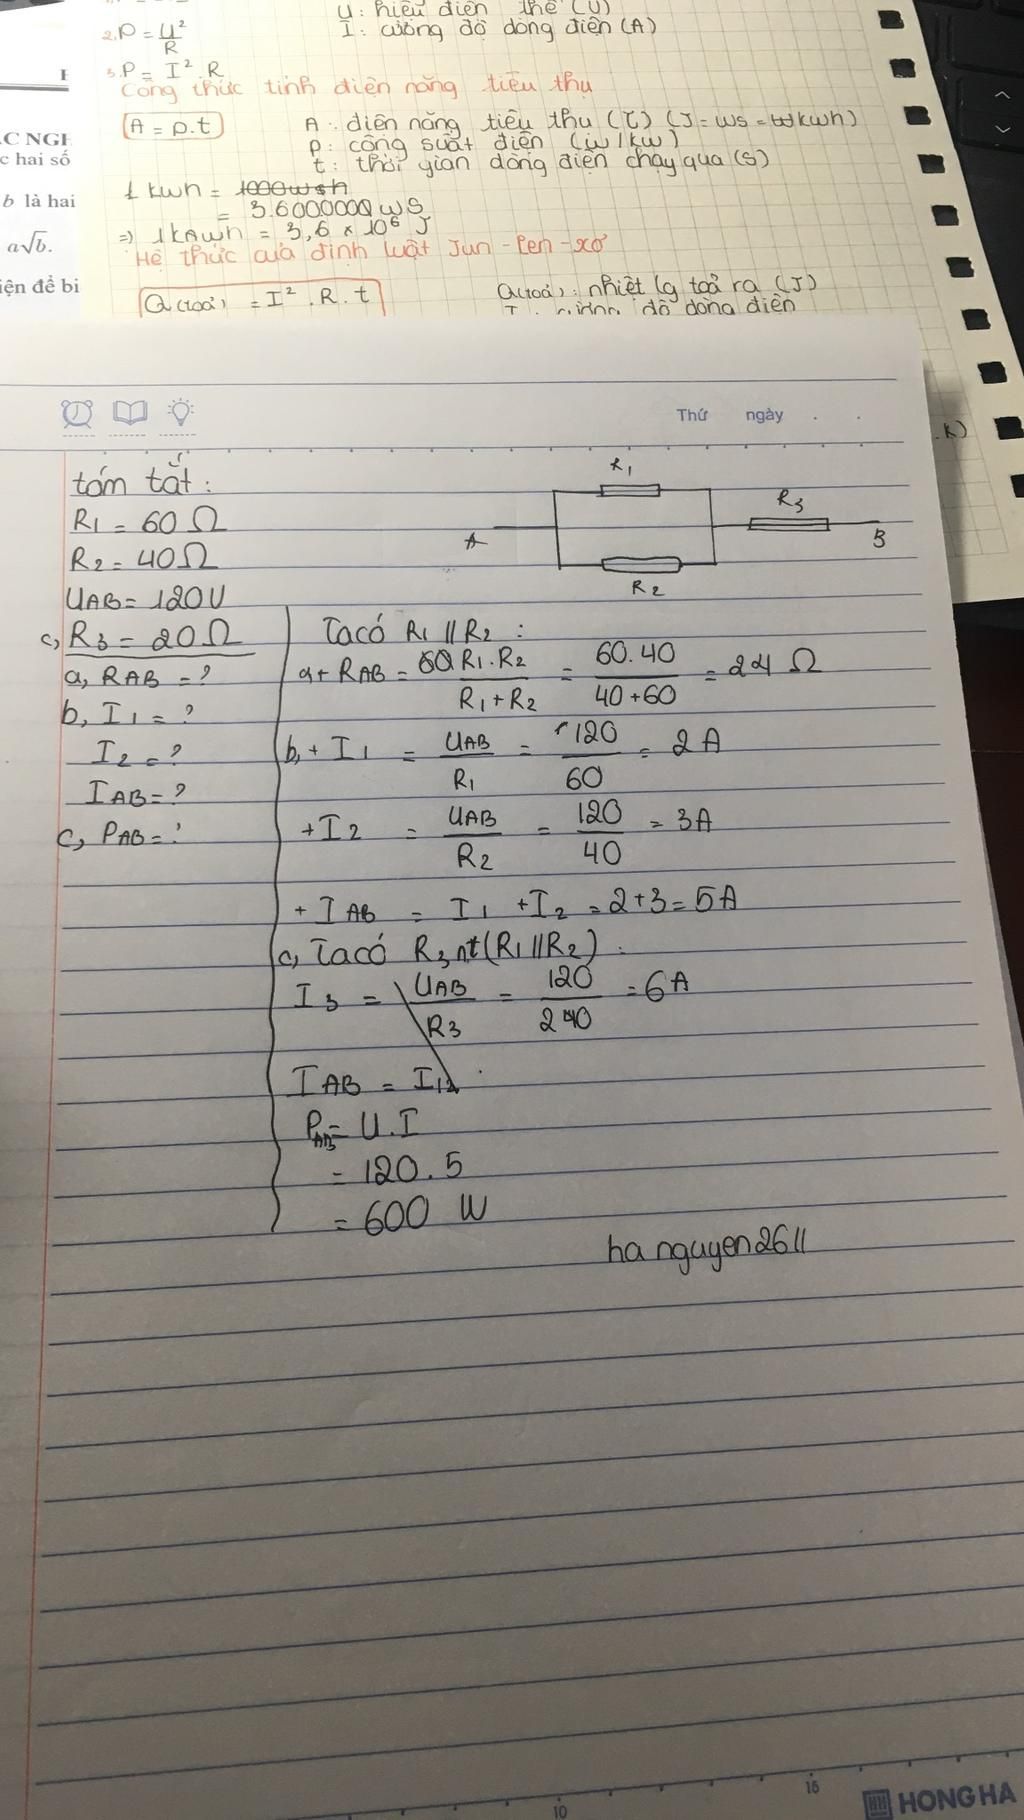 U: hiệu điện thế (U)
2. P = U²/R
I: cường độ dòng điện (A)
3. P = I². R
Công thức tính điện năng tiêu thụ
A = p.t
A: điện năng tiêu thụ (J = ws = kwh)
P: công suất điện (w/kw)
t: thời gian dòng điện chạy qua (s)
1 kwh = 1000wsh
= 3.6000000 ws
=> 1kAwh = 3,6 × 10⁶ J
Hệ thức của định luật Jun-Len-xơ
Q(toả) = I². R. t
Q(toả): nhiệt lg toả ra (J)
I: cường độ dòng điện
C NGH
c hai số
b là hai
a√b.
iện để bi
.k)
Thứ ngày . .
tóm tắt:
R1 = 60 Ω
R2 = 40Ω
UAB = 120U
c, R3 = 20Ω
a, RAB = ?
b, I1 = ?
I2 = ?
IAB = ?
c, PAB = ?
R1
R3
A
B
R2
Ta có R1 // R2 :
a + RAB = R1.R2 / R1 + R2 = 60.40 / 40+60 = 24 Ω
b, + I1 = UAB / R1 = 120 / 60 = 2 A
+ I2 = UAB / R2 = 120 / 40 = 3A
+ IAB = I1 + I2 = 2+3 = 5A
c, Ta có R3 nt (R1 // R2) :
I3 = UAB / R3 = 120 / 240 = 6A
IAB = I12
PAB = U.I
= 120.5
= 600 W
ha nguyen2611
10
15
HONG HA